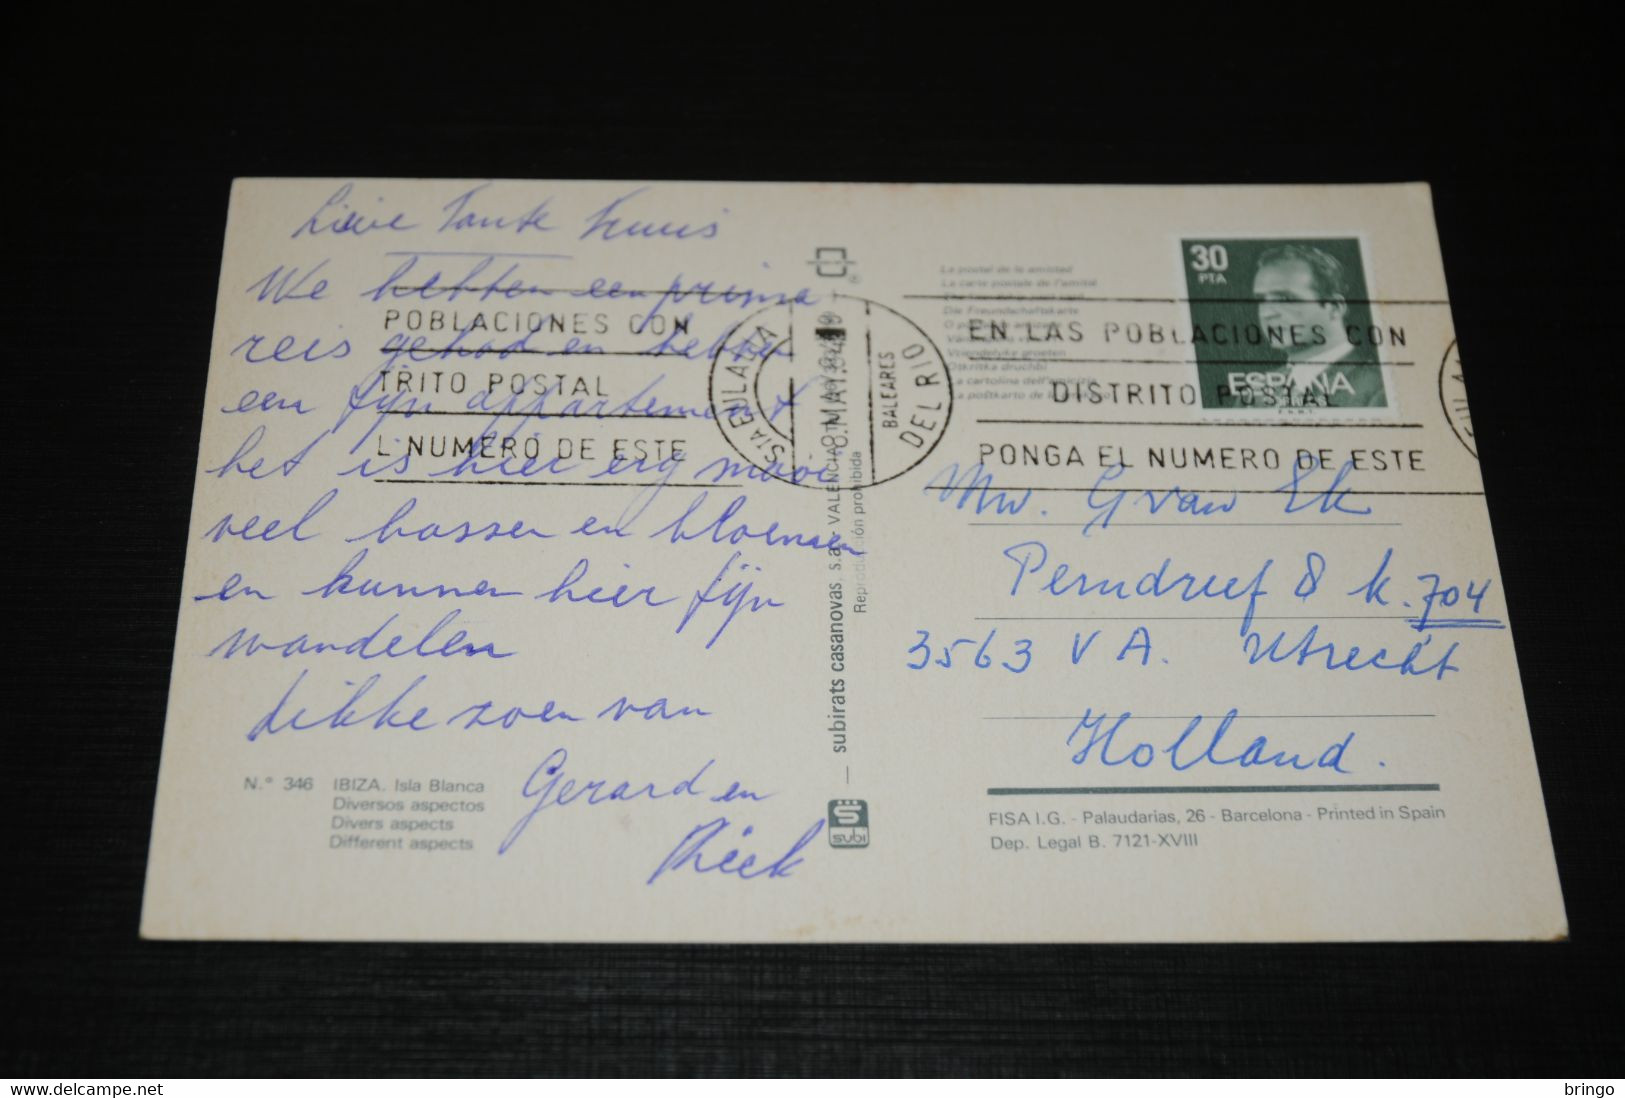 Lieve Tante
We hebben een prima
reis gehad en hebben
een fijn appartement
het is hier erg mooi
veel bossen en bloemen
en kunnen hier fijn
wandelen
dikke zoen van
Gerard en
Riek
N.° 346 IBIZA. Isla Blanca
Diversos aspectos
Divers aspects
Different aspects
POBLACIONES CON
TRITO POSTAL
L NUMERO DE ESTE
STA EULALIA
DEL RIO
BALEARES
subirats casanovas, s.a. VALENCIA
Reproducción prohibida
subi
La postal de la amistad
La carte postale de l'amitié
Die Freundschaftskarte
Vriendelyke groeten
La cartolina dell'amicizia
30
PTA
ESPAÑA
F.N.M.T.
EN LAS POBLACIONES CON
DISTRITO POSTAL
PONGA EL NUMERO DE ESTE
Mw. G van Ek
Perndreef 8 k. 704
3563 VA. Utrecht
Holland.
FISA I.G. - Palaudarias, 26 - Barcelona - Printed in Spain
Dep. Legal B. 7121-XVIII
bringo